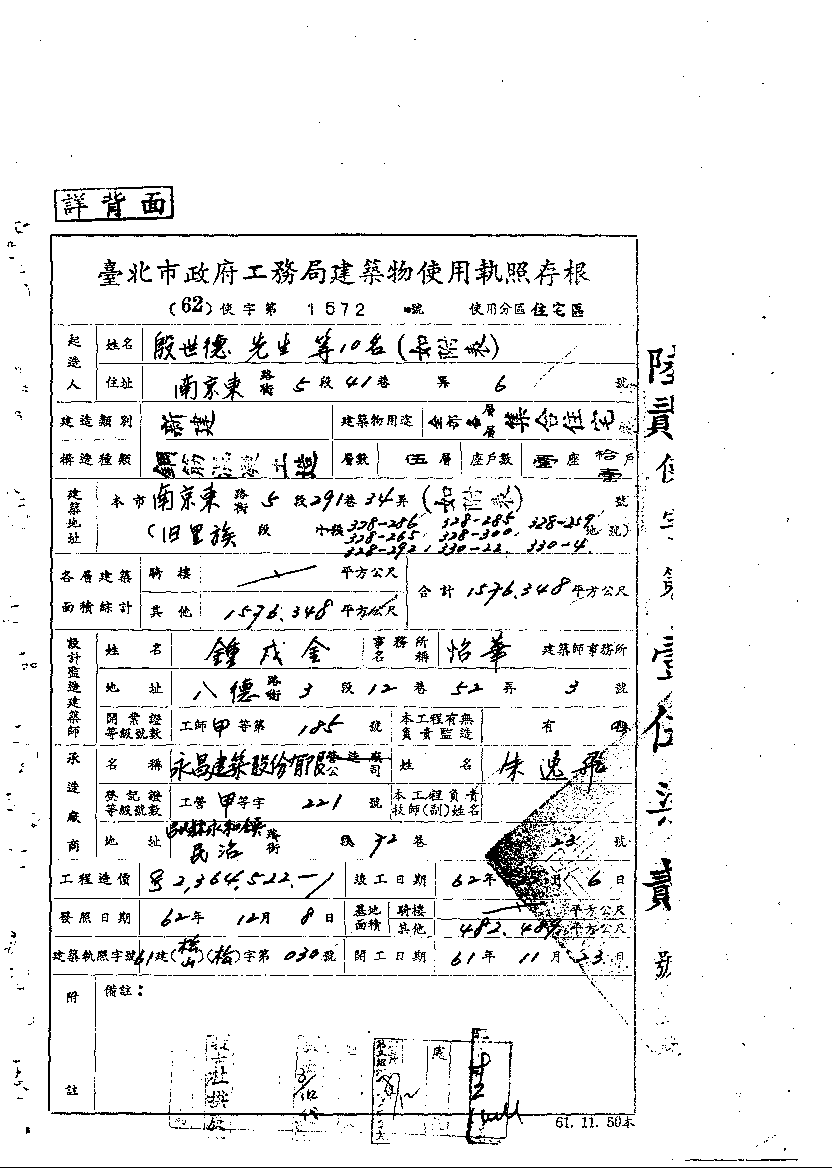 詳背面
臺北市政府工務局建築物使用執照存根
(62)使字第 1572 號 使用分區 住宅區
起造人 姓名 殷世德 先生 等10名(如附表)
住址 南京東 路街 5 段 41 巷 弄 6 號
建造類別 新建 建築物用途 集合住宅
構造種類 鋼筋 層數 伍 層 座戶數 壹 座 拾壹 戶
建築地址 本市 南京東 路街 5 段 291 巷 34 弄 (如附表) 號
(旧里族 段 小段 328-286 328-285 328-259 地號)
328-265, 328-300,
328-292, 330-22, 330-4.
各層建築面積綜計 騎樓 平方公尺 合計 1576.348 平方公尺
其他 1576.348 平方公尺
設計監造建築師 姓名 鍾戍金 事務所名稱 怡華 建築師事務所
地址 八德 路街 3 段 12 巷 52 弄 3 號
開業證等級號數 工師 甲 等第 185 號 本工程有無負責監造 有
承造廠商 名稱 永昌建築股份有限 營造廠公司 姓名 朱逸飛
登記證等級號數 工營 甲 等字 221 號 本工程負責技師(副)姓名
地址 永和鎮 民治 路街 段 72 巷 23 號
工程造價 2,364,522.- 竣工日期 62年 月 6 日
發照日期 62年 12月 8日 基地面積 騎樓 平方公尺
其他 482.489 平方公尺
建築執照字號 61建(松山)(松)字第 030 號 開工日期 61年 11月 23日
附註 備註:
陸貳使字第壹伍柒貳號
61.11.50本